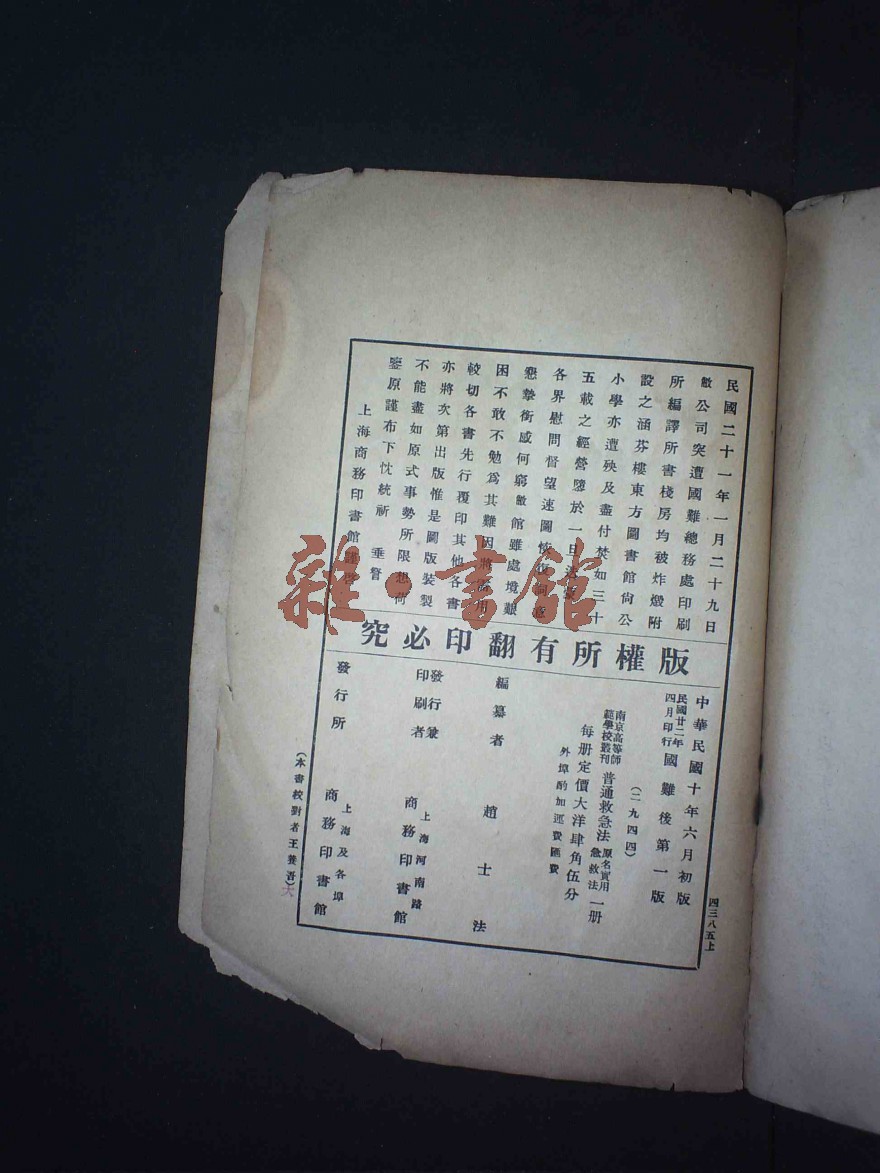 民國二十一年一月二十九日
敝公司突遭國難總務處印刷
所編譯所書棧房均被炸燬附
設之涵芬樓東方圖書館尙公
小學亦遭殃及盡付焚如三十
五載之經營隳於一旦
各界慰問督望速圖恢復
懇摯銜感何窮敝館雖處境艱
困不敢不勉爲其難因將需用
較切各書先行覆印其他各書
亦將次第出版惟是圖版裝製
不能盡如原式事勢所限想荷
鑒原謹布下忱統祈 垂詧
上海商務印書館謹啓
版權所有翻印必究
中華民國十年六月初版
民國廿二年四月印行
國難後第一版
(二九四四)
南京高等師範學校叢刊
普通救急法
原名實用急救法
一册
每册定價大洋肆角伍分
外埠酌加運費匯費
編纂者 趙士法
發行兼印刷者 上海河南路 商務印書館
發行所 上海及各埠 商務印書館
(本書校對者王養吾)
大
四三八五上
雜·書館